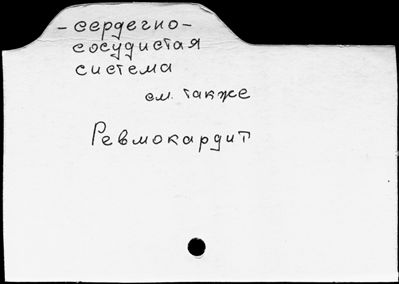 -сердечно-
сосудистая
система
см. также
Ревмокардит